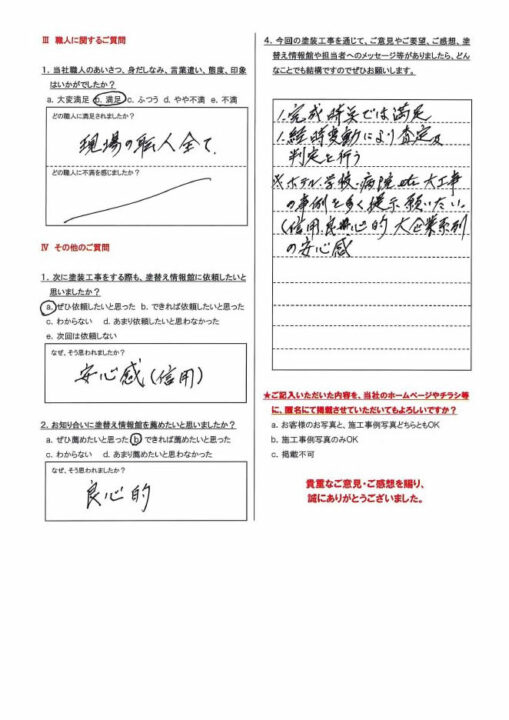 Ⅲ 職人に関するご質問
1. 当社職人のあいさつ、身だしなみ、言葉遣い、態度、印象
はいかがでしたか?
a. 大変満足 b. 満足 c. ふつう d. やや不満 e. 不満
どの職人に満足されましたか?
現場の職人全て、
どの職人に不満を感じましたか?
Ⅳ その他のご質問
1. 次に塗装工事をする際も、塗替え情報館に依頼したいと
思いましたか?
a. ぜひ依頼したいと思った b. できれば依頼したいと思った
c. わからない d. あまり依頼したいと思わなかった
e. 次回は依頼しない
なぜ、そう思われましたか?
安心感(信用)
2. お知り合いに塗替え情報館を薦めたいと思いましたか?
a. ぜひ薦めたいと思った b できれば薦めたいと思った
c. わからない d. あまり薦めたいと思わなかった
なぜ、そう思われましたか?
良心的
4. 今回の塗装工事を通じて、ご意見やご要望、ご感想、塗
替え情報館や担当者へのメッセージ等がありましたら、どん
なことでも結構ですのでぜひお願いします。
1. 完成時点では満足
1. 経時変動により査定及
判定を行う
※ホテル、学校、病院etc大工事
の事例を多く提示願いたい。
(信用、良心的 大企業系列
の安心感
★ご記入いただいた内容を、当社のホームページやチラシ等
に、匿名にて掲載させていただいてもよろしいですか?
a. お客様のお写真と、施工事例写真どちらともOK
b. 施工事例写真のみOK
c. 掲載不可
貴重なご意見・ご感想を賜り、
誠にありがとうございました。